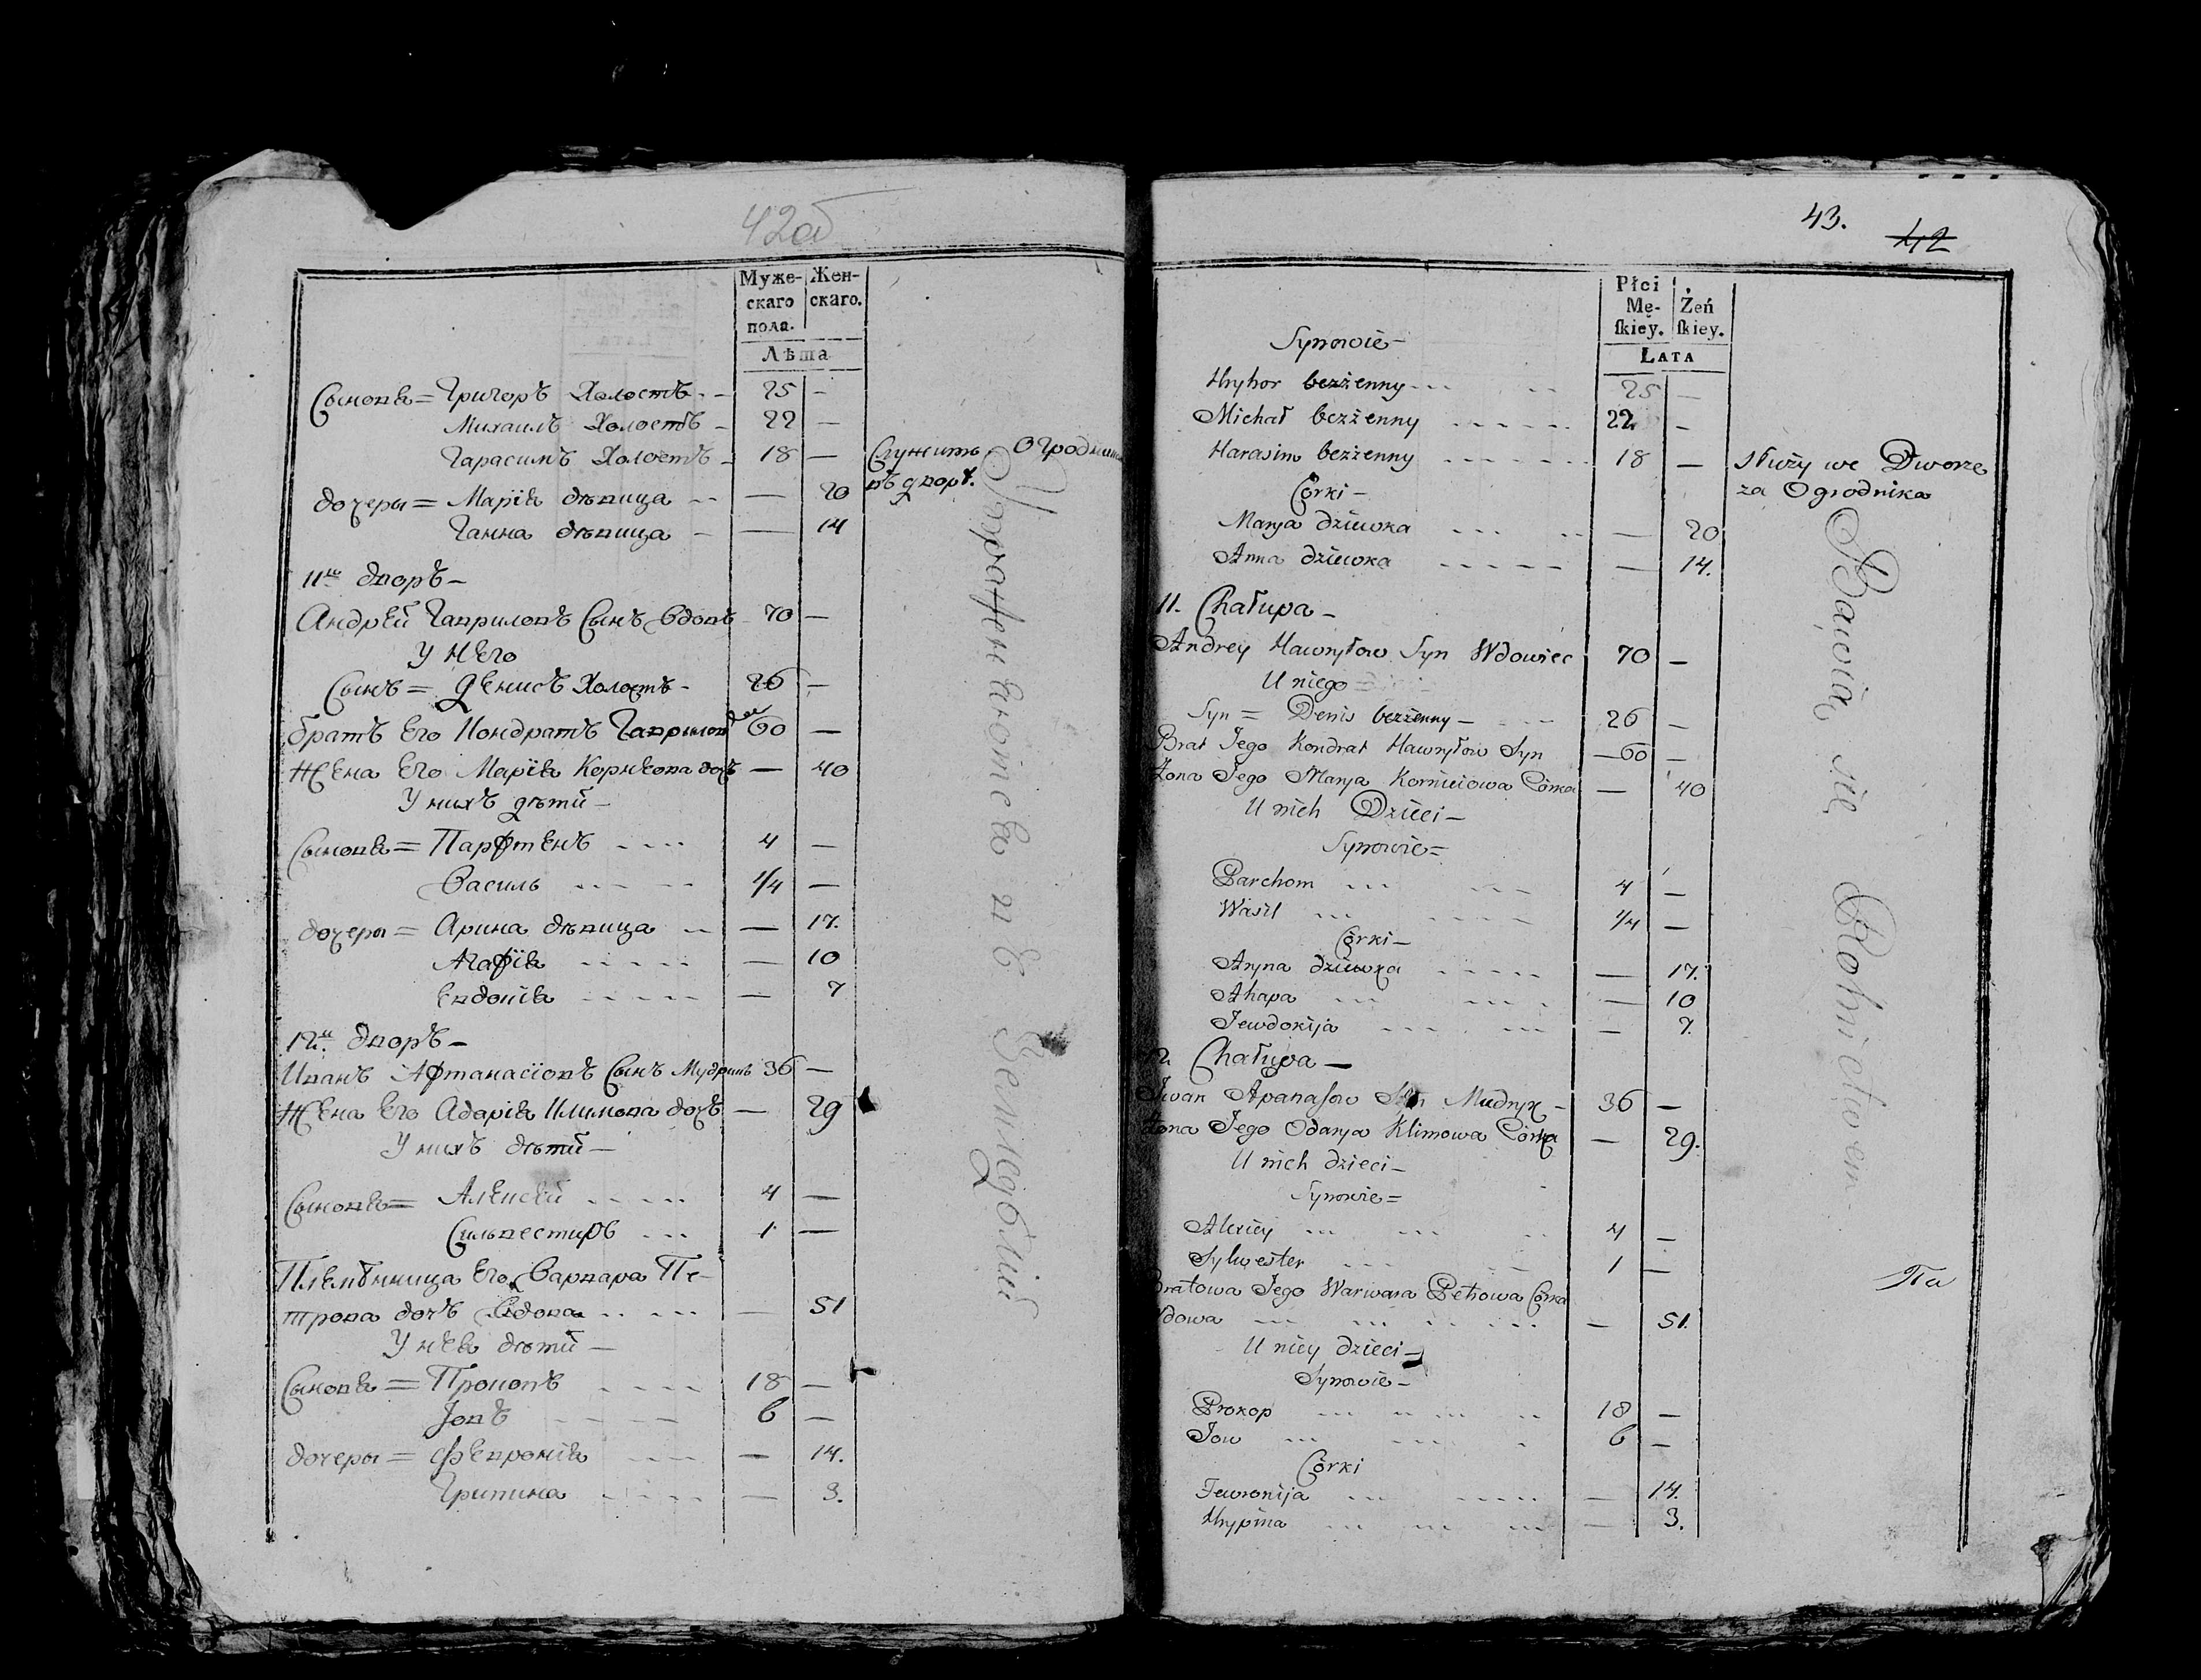 42об
Муже-
скаго
пола.
Жен-
скаго.
Лѣта
Сыновя = Григорѣ Холостѣ 25 —
Михаилѣ Холостѣ 22 —
Гарасимѣ Холостѣ 18 — Служитъ Огродник
вѣ дворѣ.
дочеры = Марія дѣвица — 20
Ганна дѣвица — 14
11й дворѣ —
Андрей Гавриловѣ Сынѣ Вдовѣ 70 —
У него
Сынѣ = Денисѣ Холостѣ 26 —
братѣ Его Кондратѣ Гаврилов 60 —
Жена Его Марія Корнѣева дочѣ — 40
У нихѣ дѣти —
Сыновя = Парфтенѣ 4 —
Василь 1/4 —
дочеры = Арина дѣвица — 17.
Агафія — 10
Евдокія — 7
12й дворѣ —
Иванѣ Афтанасіовѣ Сынѣ Мудрикѣ 36 —
Жена Его Адарія Климова дочѣ — 29
У нихѣ дѣти —
Сыновя = Алексѣй 4 —
Сильвестирѣ 1 —
Племѣнница Его Варвара Пе-
трова дочѣ Вдова — 51
У нея дѣти —
Сыновя = Прокопѣ 18 —
Іовѣ 6 —
дочеры = Февронія — 14.
Грипина — 3.
Упражняются въ Земледѣліи
43. 42
Płci
Mę-
ſkiey.
Żeń
ſkiey.
Lata
Synowie —
Hryhor bezżenny 25 —
Michał bezżenny 22 —
Harasim bezżenny 18 — służy we Dworze
za Ogrodnika
Córki —
Marya dziewka — 20
Anna dziewka — 14.
11. Chałupa —
Andrey Hawryłow Syn Wdowiec 70 —
U niego
Syn = Denis bezżenny — 26 —
Brat Jego Kondrat Hawryłow Syn — 60 —
Żona Jego Marya Korniejowa Córka — 40
U nich Dzieci —
Synowie =
Parchom 4 —
Wasil 1/4 —
Córki —
Aryna dziewka — 17.
Ahapa — 10
Jewdokija — 7.
12 Chałupa —
Iwan Apanasow Syn Mudryk — 36 —
Żona Jego Odarya Klimowa Córka — 29.
U nich dzieci —
Synowie =
Alexiey 4 —
Sylwester 1 —
Bratowa Jego Warwara Petrowa Córka
Wdowa — 51.
U niey dzieci —
Synowie —
Prokop 18 —
Jow 6 —
Córki
Jewronija — 14.
Hrypina — 3.
Bawią się Rolnictwem
Па